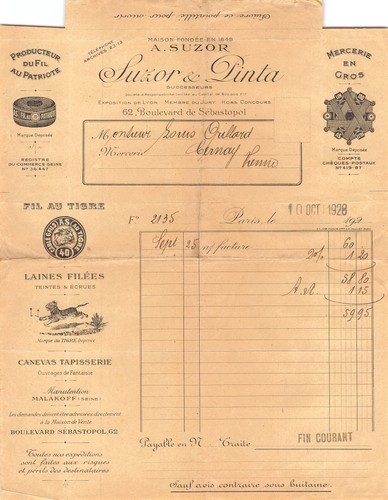 Suivre ce pointillé pour ouvrir
MAISON FONDÉE EN 1849
A. SUZOR
TÉLÉPHONE
Suzor & Pinta
SUCCESSEURS
EXPOSITION DE LYON MEMBRE DU JURY HORS CONCOURS
62, Boulevard de Sébastopol
PRODUCTEUR
DU FIL
AU PATRIOTE
Marque Déposée
REGISTRE
DU COMMERCE SEINE
No 36.847
MERCERIE
EN
GROS
Marque Déposée
COMPTE
CHÈQUES-POSTAUX
No 419-97
Monsieur Louis
Mercerie
Vienne
FIL AU TIGRE
40
F° 2135 Paris, le 10 OCT 1928 192
Sept 25 n/ facture 60
2% 1 20
58 80
1 15
59 95
LAINES FILÉES
TEINTES & ÉCRUES
Marque au TIGRE Déposée
CANEVAS TAPISSERIE
Ouvrages de Fantaisie
Manutention
MALAKOFF (SEINE)
Les demandes doivent être adressées directement
à la Maison de Vente
BOULEVARD SÉBASTOPOL, 62
Toutes nos expéditions
sont faites aux risques
et périls des destinataires
Payable en N Traite FIN COURANT
Sauf avis contraire sous huitaine